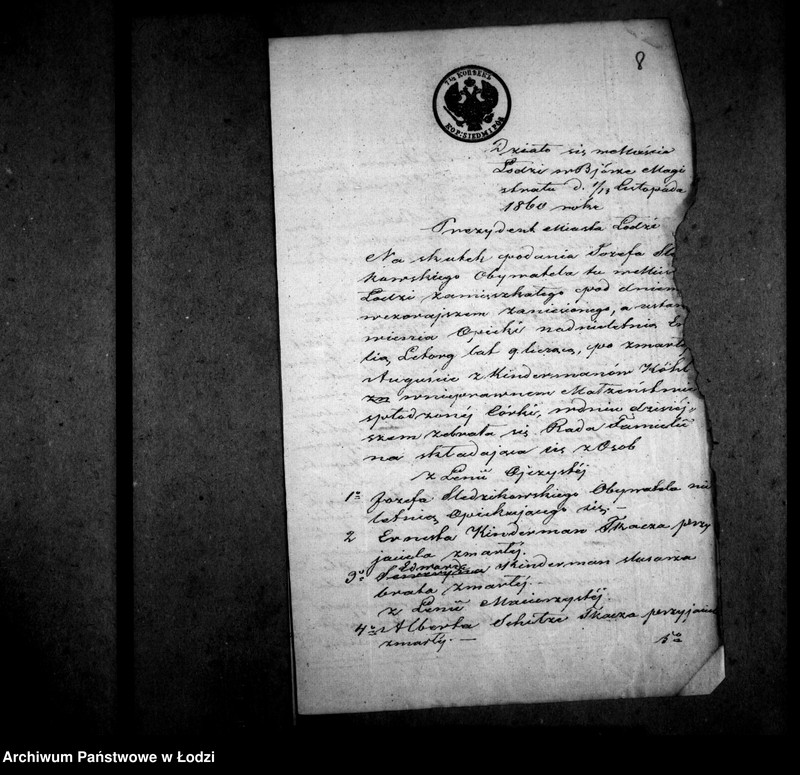 8
7½ КОПѢЕКЪ
KOP: SIEDM I PÓŁ
Działo się w Mieście
Łodzi w Biórze Magi
stratu d. 1/13 Listopada
1860 roku
Prezydent Miasta Łodzi
Na skutek podania Józefa Śle
kowskiego Obywatela tu w Mieście
Łodzi zamieszkałego pod dniem
wczorajszem zaniesionego, a ustan
wienia Opieki nad nieletnią
lią Letorg lat 9 liczącą, po zmarłej
Auguście z Kindermanow
w nieprawnem Małżeństwie
spłodzonej Córki, w dniu dzisiej
szem zebrała się Rada Familii
na składająca się z Osób
z Linii Ojczystej
1o Józefa Śledzikowskiego Obywatela nie
letnią Opiekującego się. —
2 Ernesta Kinderman Tkacza przy
jaciela zmarłej.
3o Edwarda Kinderman ślusarza
brata zmarłej. —
z Linii Macierzystej.
4o Alberta Schütze Tkacza przyjaciela
zmarłej. —
5o
Archiwum Państwowe w Łodzi